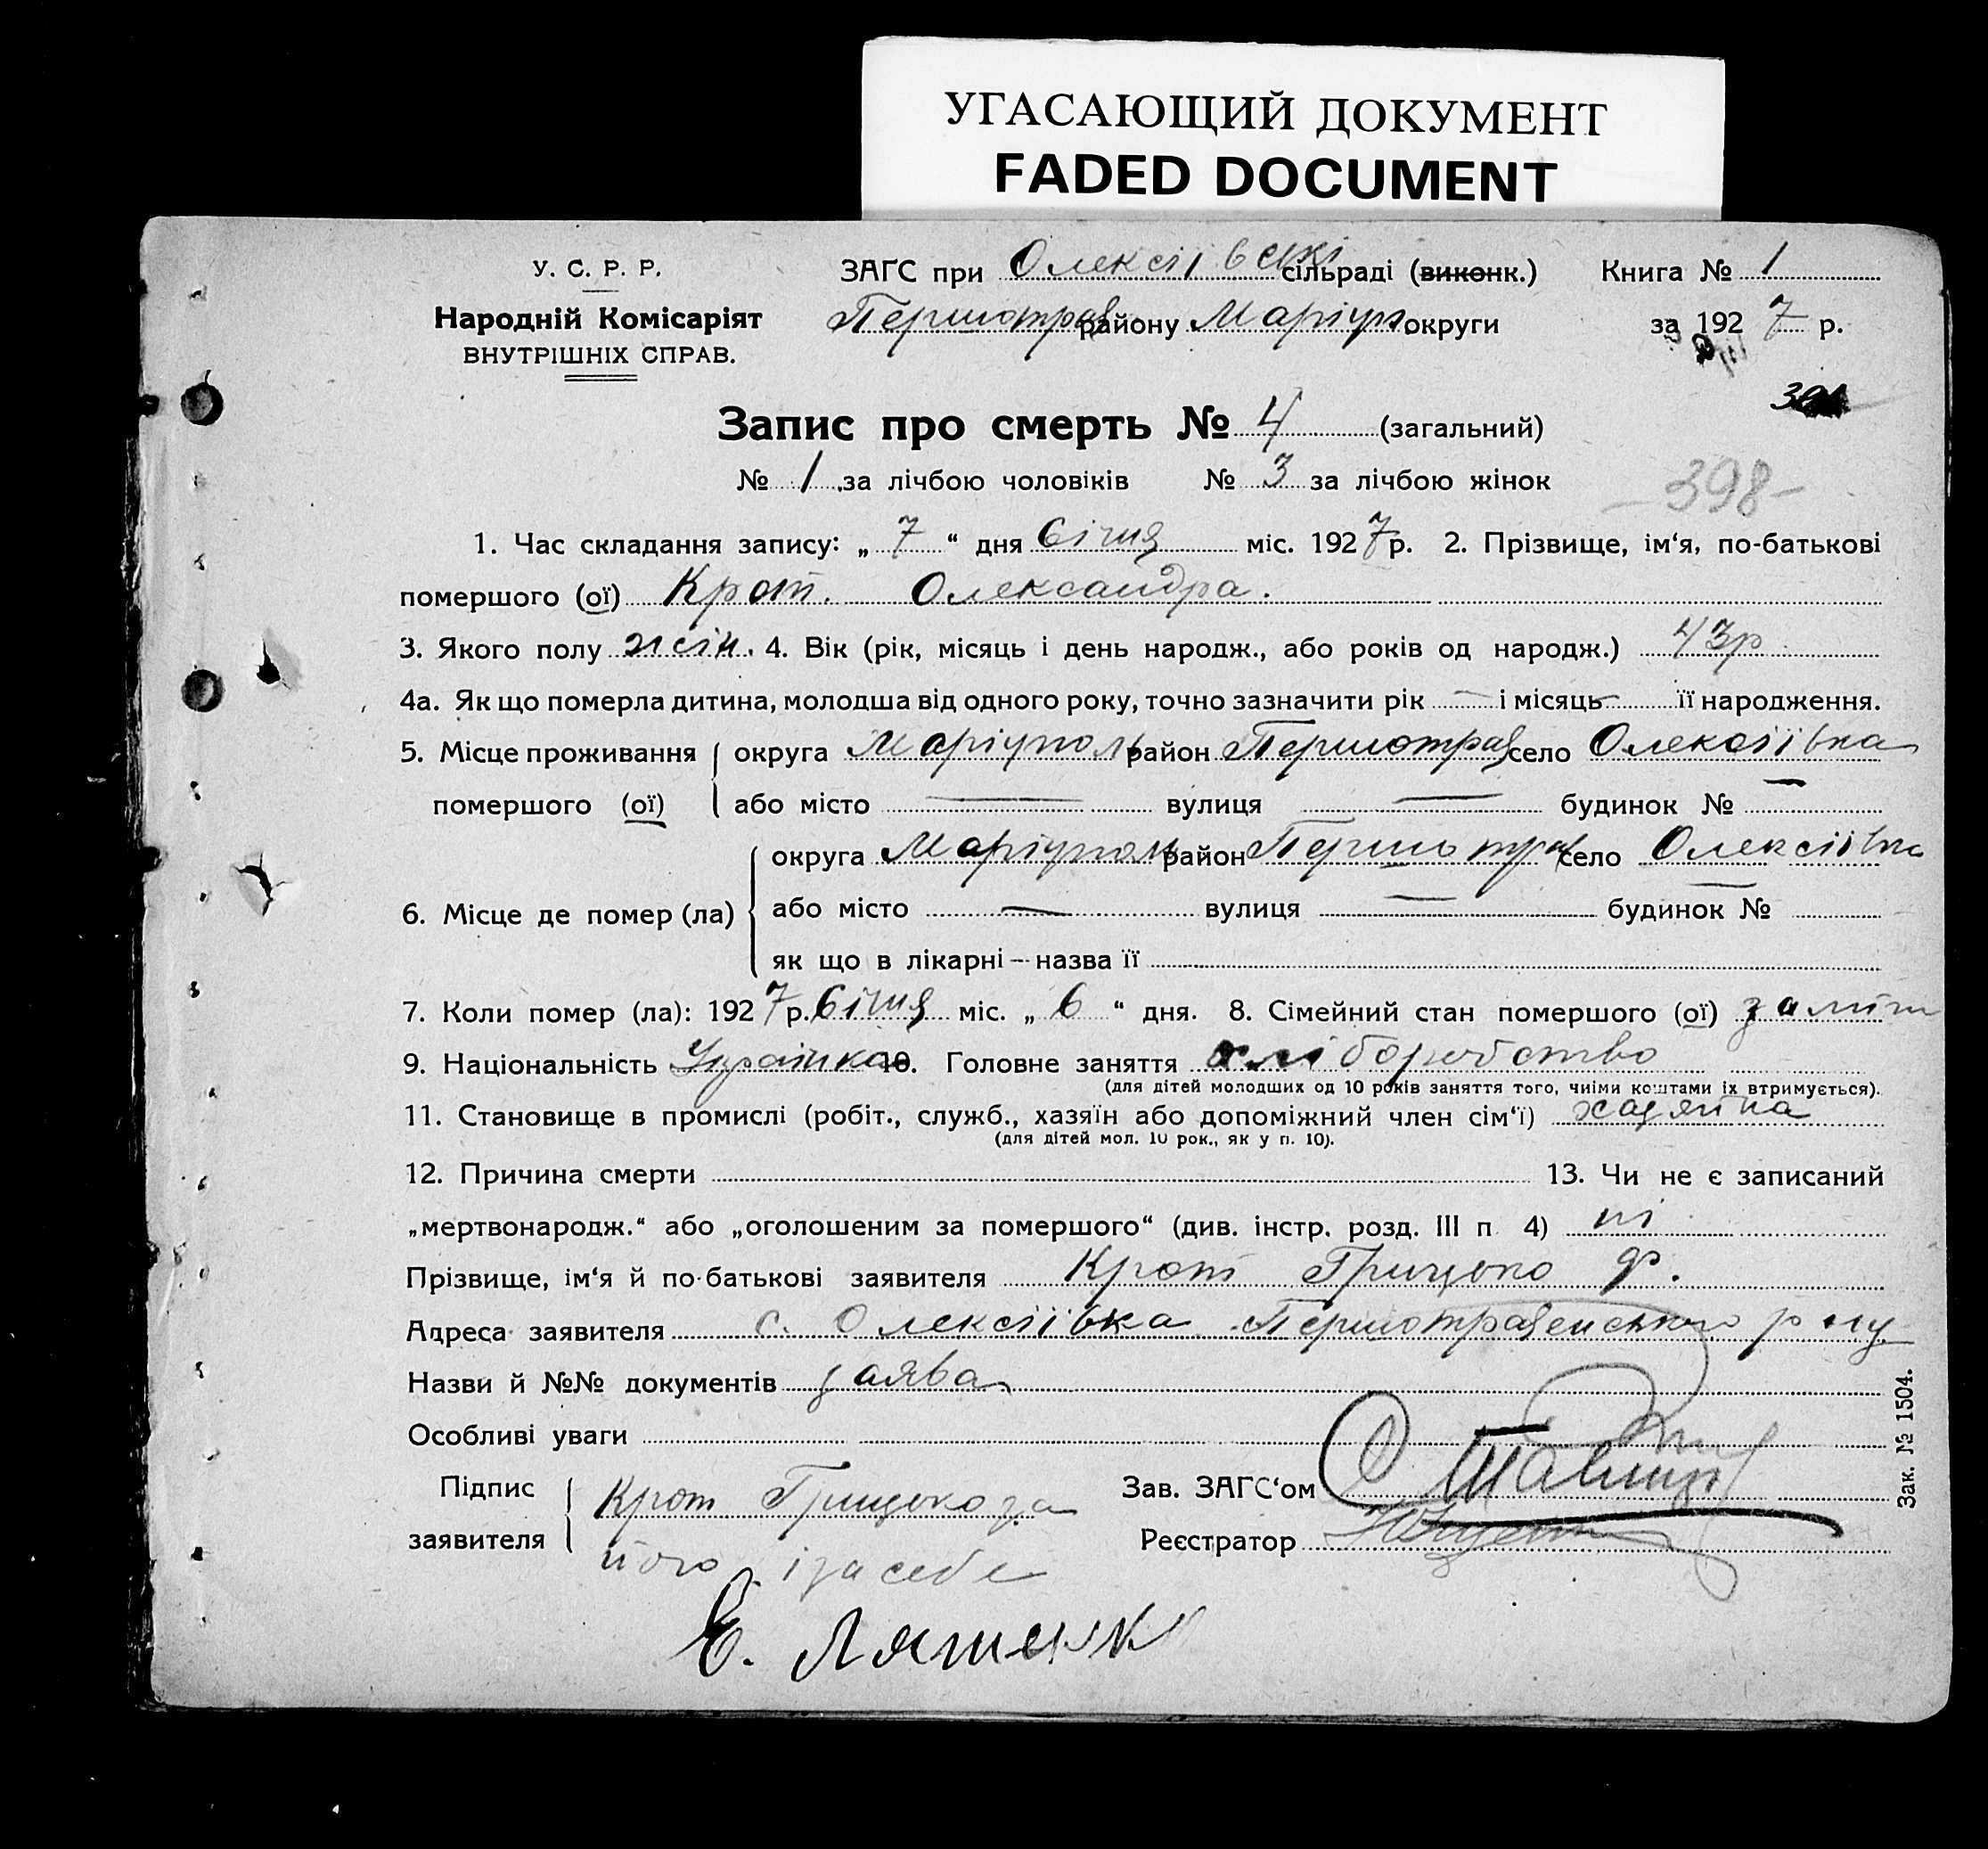 УГАСАЮЩИЙ ДОКУМЕНТ
FADED DOCUMENT
У. С. Р. Р.
Народній Комісаріят
ВНУТРІШНІХ СПРАВ.
ЗАГС при Олексіївскі сільраді (виконк.) Книга № 1
Першотрав району Маріуп. округи за 1927 р.
Запис про смерть № 4 (загальний)
№ 1 за лічбою чоловіків № 3 за лічбою жінок
-398-
1. Час складання запису: „ 7 “ дня Січня міс. 1927 р. 2. Прізвище, ім‘я, по-батькові
помершого (ої) Крот. Олександра.
3. Якого полу жін. 4. Вік (рік, місяць і день народж., або років од народж.) 43р
4а. Як що померла дитина, молодша від одного року, точно зазначити рік — і місяць — її народження.
5. Місце проживання округа Маріуполь район Першотрав село Олексіївка
помершого (ої) або місто — вулиця — будинок № —
6. Місце де помер (ла) округа Маріуполь район Першотрав село Олексіївка
або місто — вулиця — будинок № —
як що в лікарні — назва її
7. Коли помер (ла): 1927 р. Січня міс. „ 6 “ дня. 8. Сімейний стан помершого (ої) заміж
9. Національність Українка 10. Головне заняття хліборобство
(для дітей молодших од 10 років заняття того, чиїми коштами їх втримується).
11. Становище в промислі (робіт., служб., хазяїн або допоміжний член сім‘ї) хазяйка
(для дітей мол. 10 рок., як у п. 10).
12. Причина смерти 13. Чи не є записаний
„мертвонародж.“ або „оголошеним за помершого“ (див. інстр. розд. III п 4) ні
Прізвище, ім‘я й по-батькові заявителя Крот Грицько Ф.
Адреса заявителя с. Олексіївка Першотравенського р-ну
Назви й №№ документів заява
Особливі уваги
Підпис заявителя Крот Грицько за
його і за себе
Е. Ляшенко
Зав. ЗАГС‘ом
Реєстратор
Зак. № 1504.